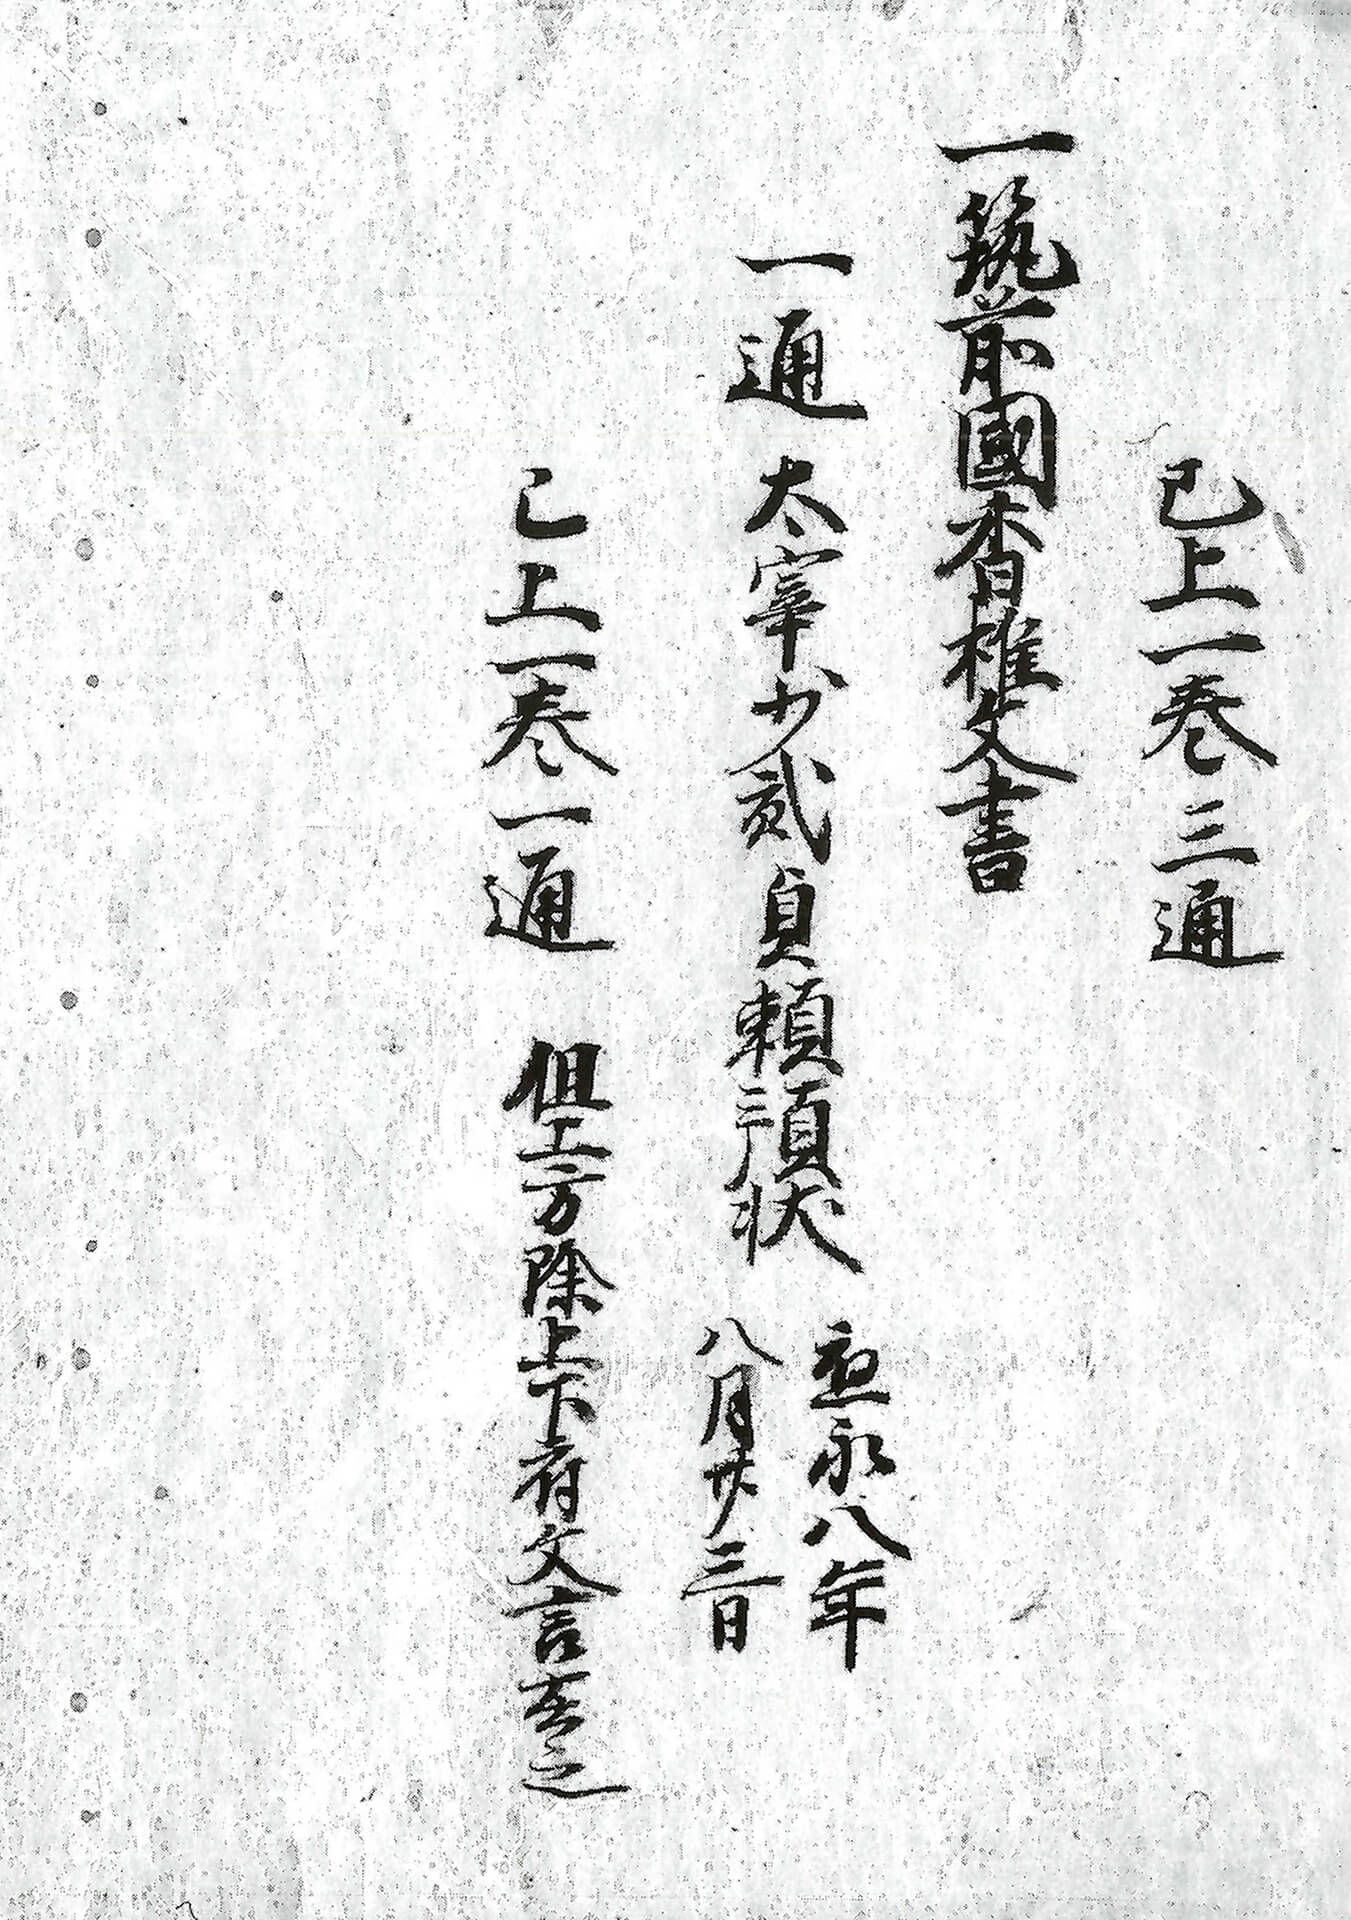 已上一巻三通
一筑前國香椎文書
一通 太宰少貳貞頼預状 應永八年
八月廿三日
已上一巻一通 但上方除上下府文言在之